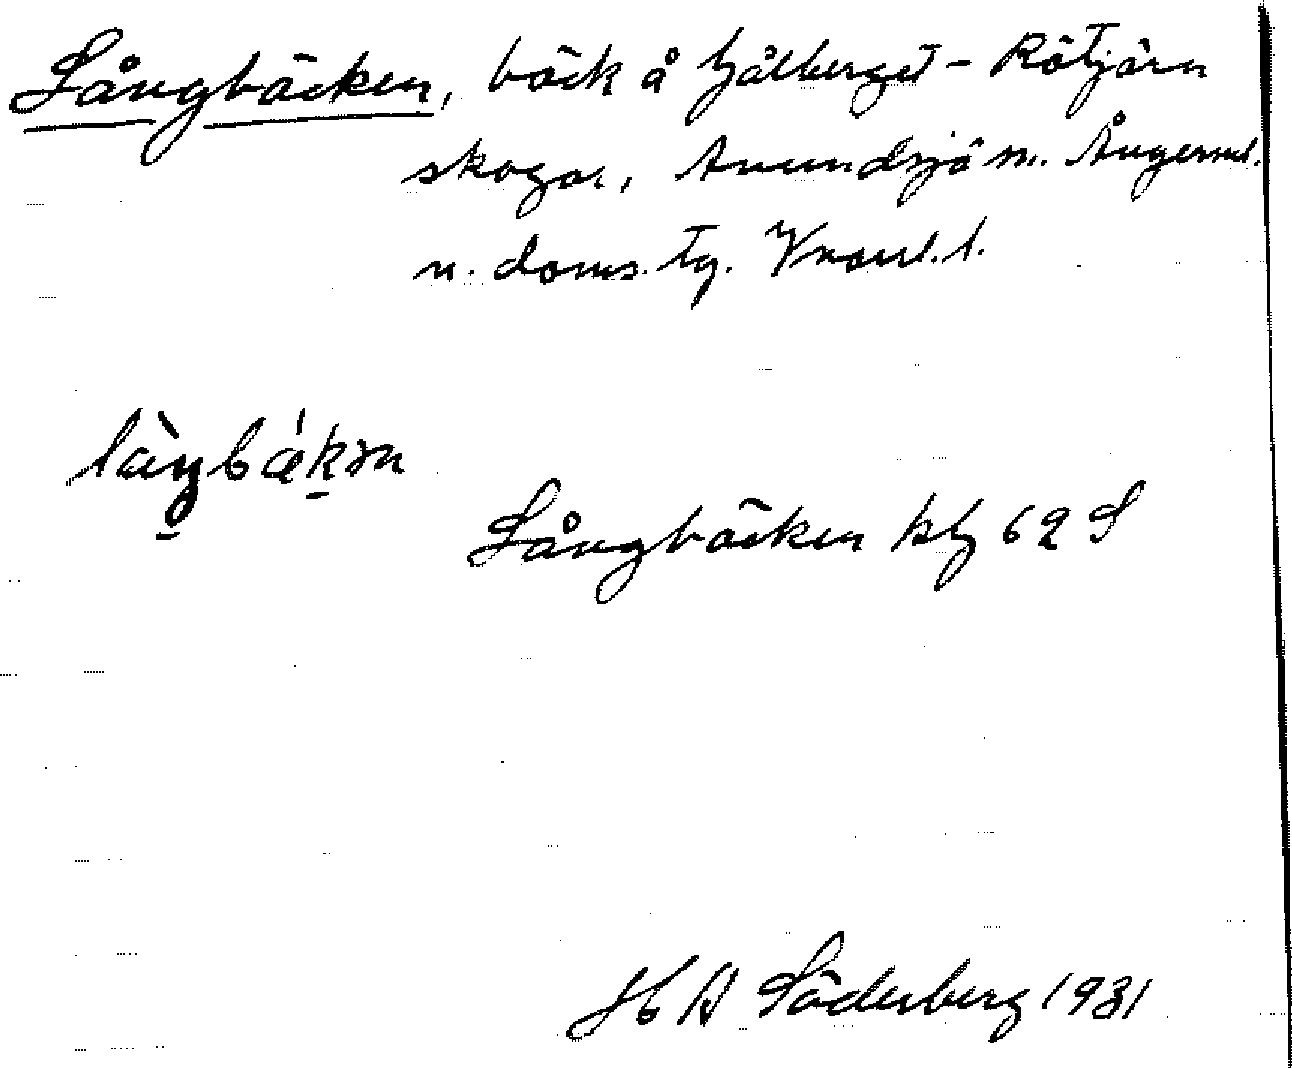 Långbäcken, bäck å Hjälberget - Rötjärn
skogar, Anundsjö sn. Ångerml.
n. doms. tg. Vnorrl. l.
làŋbǽkən
Långbäcken kbl 62 S
H A Söderberg 1931